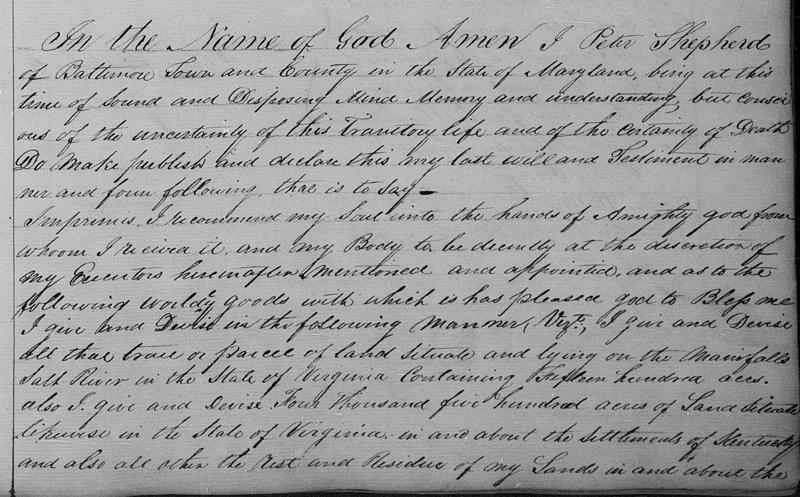 In the Name of God Amen I Peter Shepherd
of Baltimore Town and County in the State of Maryland, being at this
time of sound and Disposing Mind Memory and understanding, but consci
ous of the uncertainty of this Transitory life and of the certainty of Death
Do Make publish and declare this my last will and Testiment in man
ner and form following, that is to say—
Imprimis, I recommend my Soul into the hands of Amighty god from
whom I recived it, and my Body to be decently at the discretion of
my Executors hereinafter mentioned and appointed, and as to the
following worldly goods with which is has pleased god to Bless me
I give and Devise in the following Manner, Vizt., I give and Devise
all that trace or parcel of land situate and lying on the Main falls
Salt River in the State of Virginia Containing Fifteen hundred acres.
also I give and Devise Four Thousand five hundred acres of Land situate
likewise in the State of Virginia in and about the Settlements of Kentucky
and also all other the Rest and Residue of my Lands in and about the